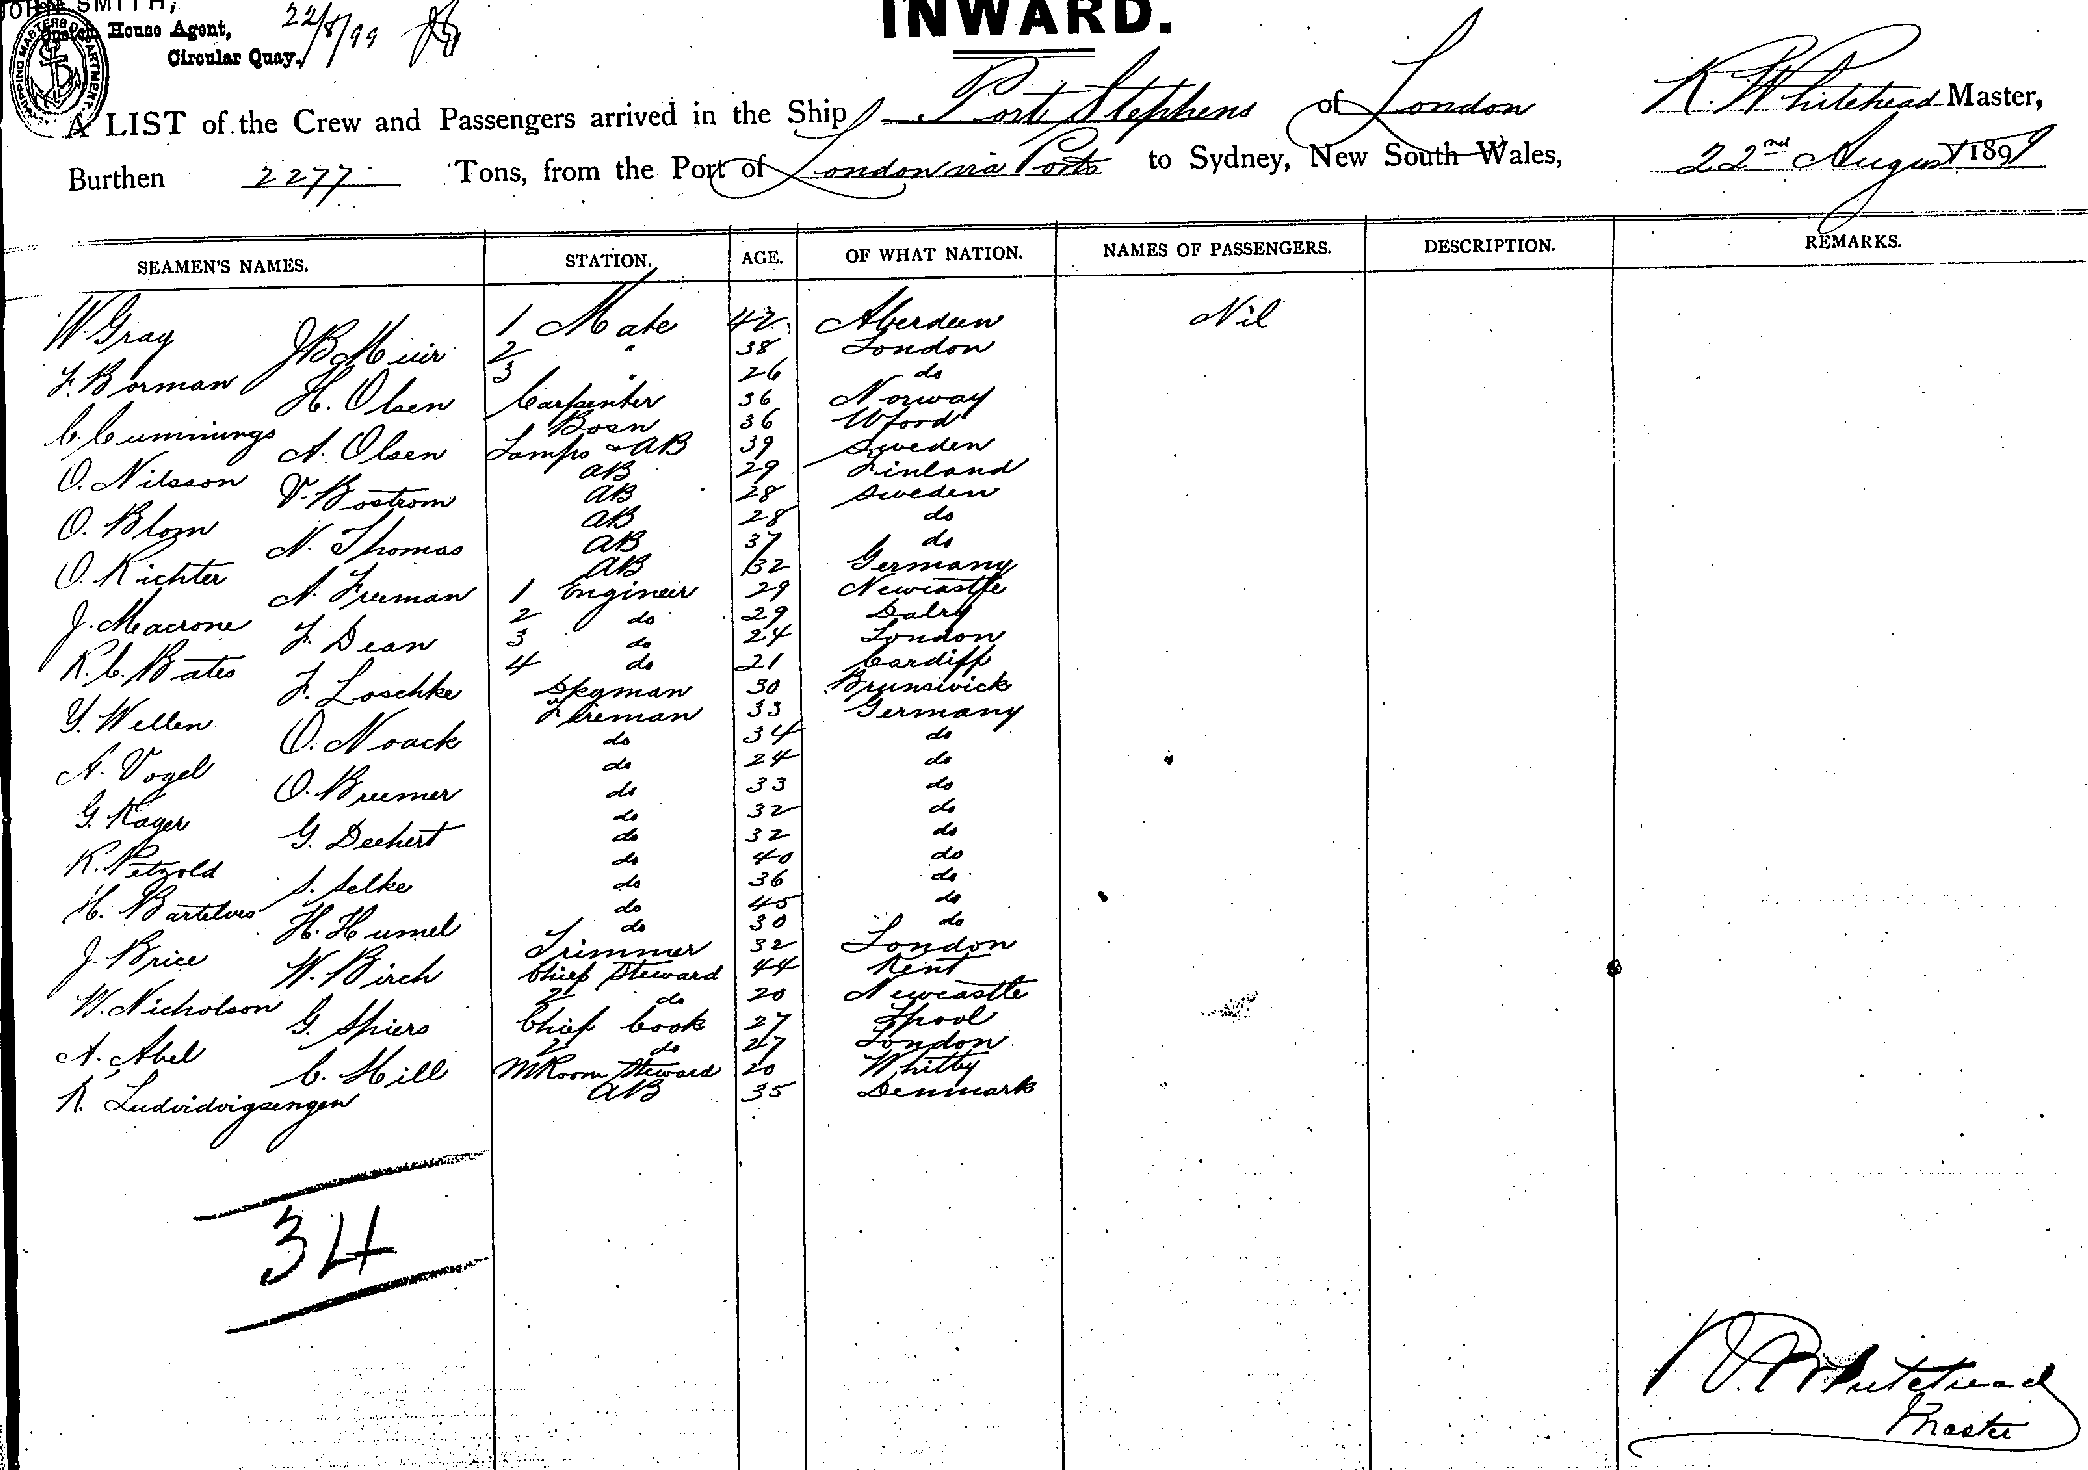 JOHN SMITH,
Custom House Agent,
Circular Quay.
22/8/99
SHIPPING MASTERS DEPARTMENT.
INWARD.
A LIST of the Crew and Passengers arrived in the Ship Port Stephens of London R. Whitehead Master,
Burthen 2277 Tons, from the Port of London via Ports to Sydney, New South Wales, 22nd August 1899
SEAMEN'S NAMES. STATION. AGE. OF WHAT NATION. NAMES OF PASSENGERS. DESCRIPTION. REMARKS.
W. Gray 1 Mate 42 Aberdeen Nil
J B Muir 2 " 38 London
F. Borman 3 " 26 do
H. Olsen Carpenter 36 Norway
C. Cummings Bosn 36 Wford
A. Olsen Lamps & AB 39 Sweden
O. Nilsson AB 29 Finland
V. Bostrom AB 28 Sweden
O. Blom AB 28 do
N. Thomas AB 37 do
O. Richter AB 32 Germany
A. Freeman 1 Engineer 29 Newcastle
J. Macrone 2 do 29 Dalry
F. Dean 3 do 24 London
R. C. Bates 4 do 21 Cardiff
F. Loschke Dkyman 30 Brunswick
Y. Wellen Fireman 33 Germany
O. Noack do 34 do
A. Vogel do 24 do
O. Breemer do 33 do
G. Kager do 32 do
G. Dechert do 32 do
R. Petzold do 40 do
S. Selke do 36 do
H. do 45 do
H. Humel do 30 do
J. Brice Trimmer 32 London
W. Birch Chief Steward 44 Kent
W. Nicholson 2 do 20 Newcastle
G. Spiers Chief Cook 27 Lpool
A. Abel 2 do 27 London
C. Hill M Room Steward 20 Whitby
R. Ludvidvigsengen AB 35 Denmark
34
R. Whitehead
Master